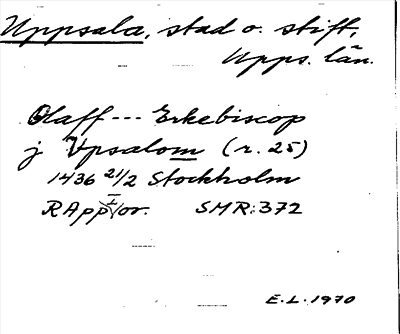 Uppsala, stad o. stift,
Upps. län.
Olaff --- Erkebiscop
j Vpsalom (r. 25)
1436 21/2 Stockholm
RApp or. SMR: 372
E.L. 1970